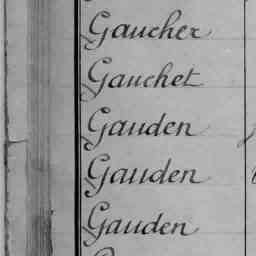 Gaucher
Gauchet
Gauden
Gauden
Gauden